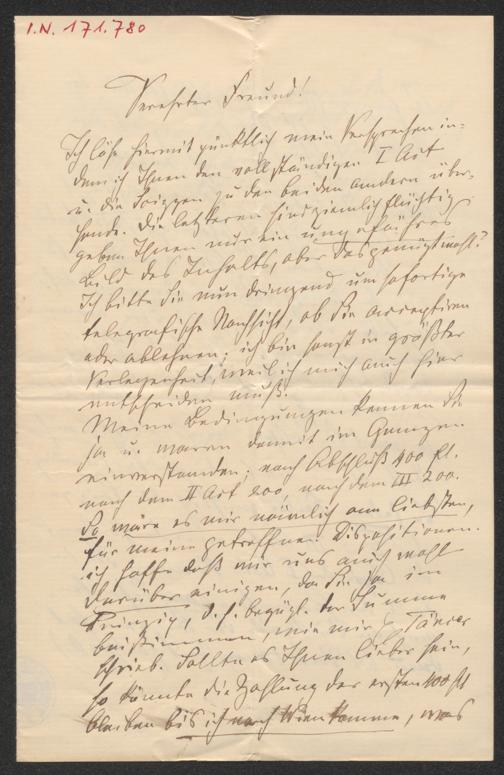 I.N. 171.780
Verehrter Freund!
Ich löse hiermit pünktlich mein Versprechen in-
dem ich Ihnen den vollständigen I Act
u. die Scizzen zu den beiden andern über-
sende. Die letzteren sind ziemlich flüchtig,
geben Ihnen nur ein ungefähres
Bild des Inhalts, aber das genügt wohl?
Ich bitte Sie nun dringend um sofortige
telegrafische Nachricht, ob Sie acceptiren
oder ablehnen; ich bin sonst in größter
Verlegenheit, weil ich mich auch hier
entscheiden muß.
Meine Bedingungen kennen Sie
ja u. waren damit im Ganzen
einverstanden; nach Abschluß 400 fl.
nach dem II Act 200, nach dem III 200.
So wäre es mir nämlich am liebsten,
für meine getroffenen Dispositionen.
ich hoffe daß wir uns auch wohl
darüber einigen, da Sie ja im
Prinzip, d. h. bezügl. der Summe
beistimmen, wie mir H. Tänzer
schrieb. Sollte es Ihnen lieber sein,
so könnte die Zahlung der ersten 400 fl
bleiben bis ich nach Wien komme, was